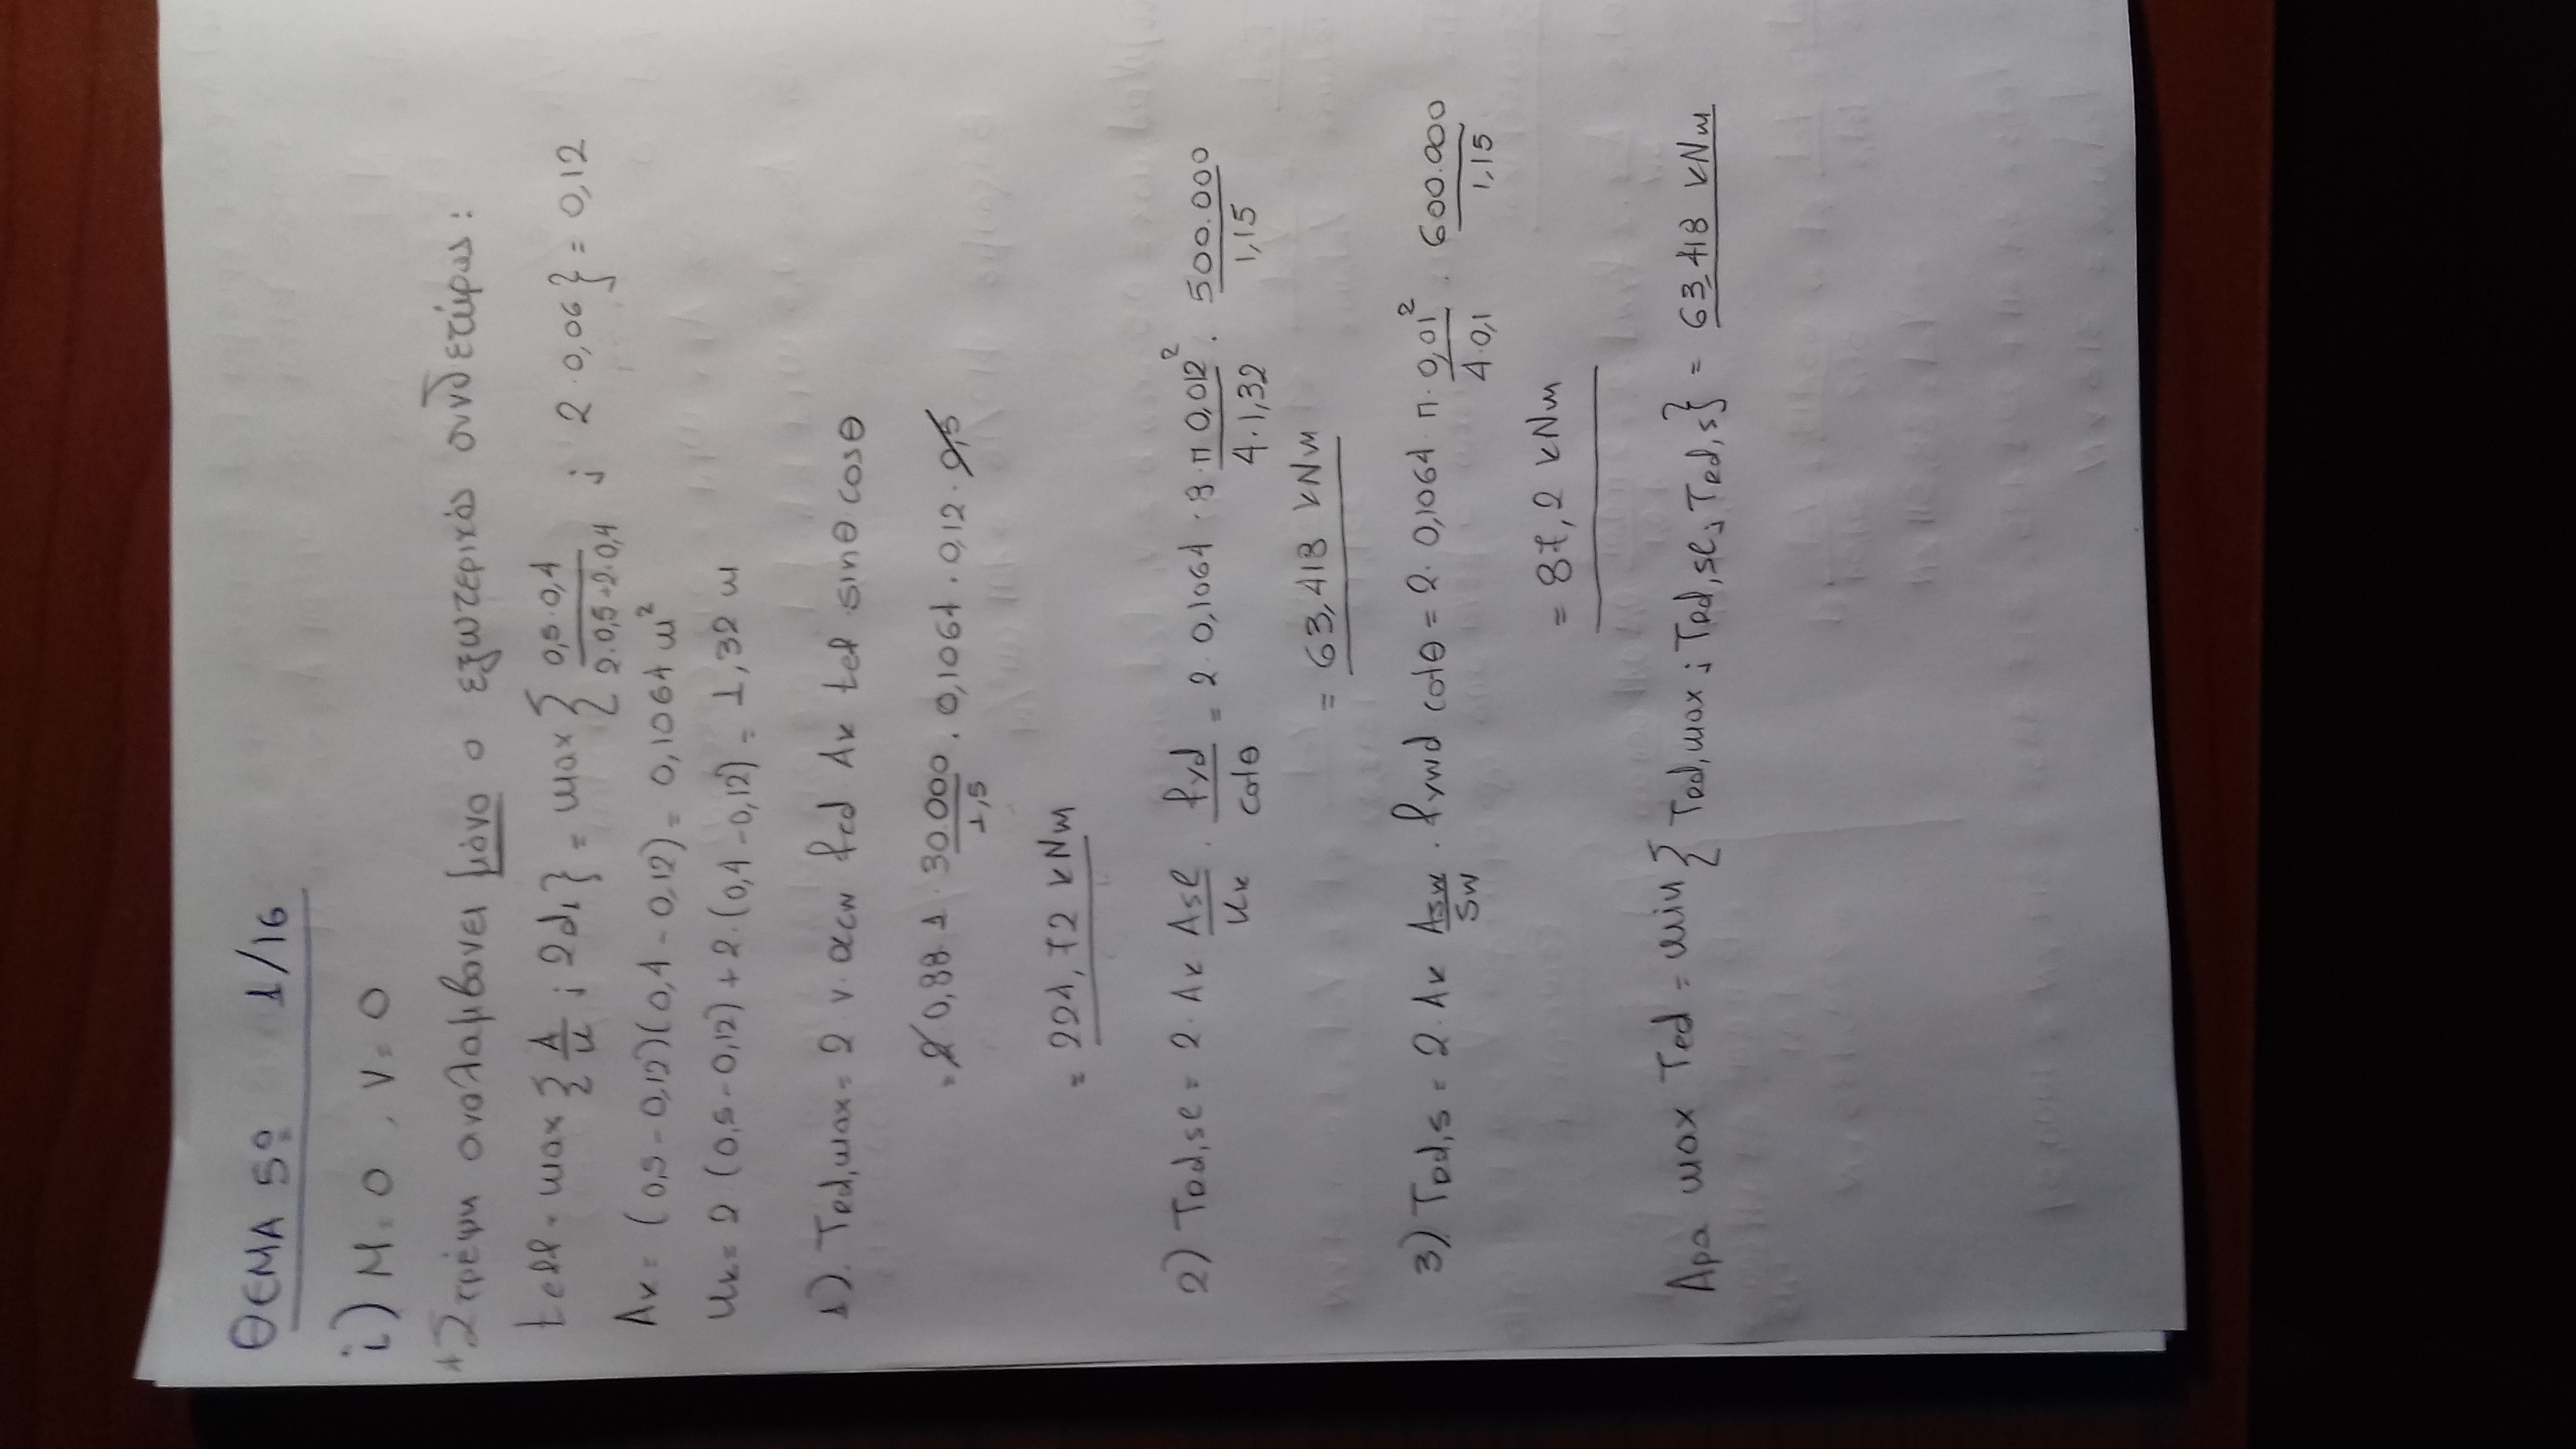 ΘΕΜΑ 5º 1/16
i) M=0, V=0
Στρέψη αναλαμβάνει μόνο ο εξωτερικός συνδετήρας:
tef = max { A/u ; 2d₁ } = max { 0,5·0,4 / 2·0,5+2·0,4 ; 2·0,06 } = 0,12
Ak = (0,5-0,12)(0,4-0,12) = 0,1064 m²
uk = 2(0,5-0,12)+2·(0,4-0,12) = 1,32 m
1). TRd,max = 2 ν·αcw fcd Ak tef sinθ cosθ
= 2 0,88·1·30.000/1,5·0,1064·0,12·0,5
= 224,72 kNm
2) TRd,sl = 2·Ak Asl/uk · fyd/cotθ = 2·0,1064·8·π 0,012²/4·1,32 · 500.000/1,15
= 63,418 kNm
3) TRd,s = 2·Ak Asw/sw · fywd cotθ = 2·0,1064·π·0,01²/4·0,1 · 600.000/1,15
= 87,2 kNm
Άρα max TEd = min { TRd,max ; TRd,sl ; TRd,s } = 63,418 kNm